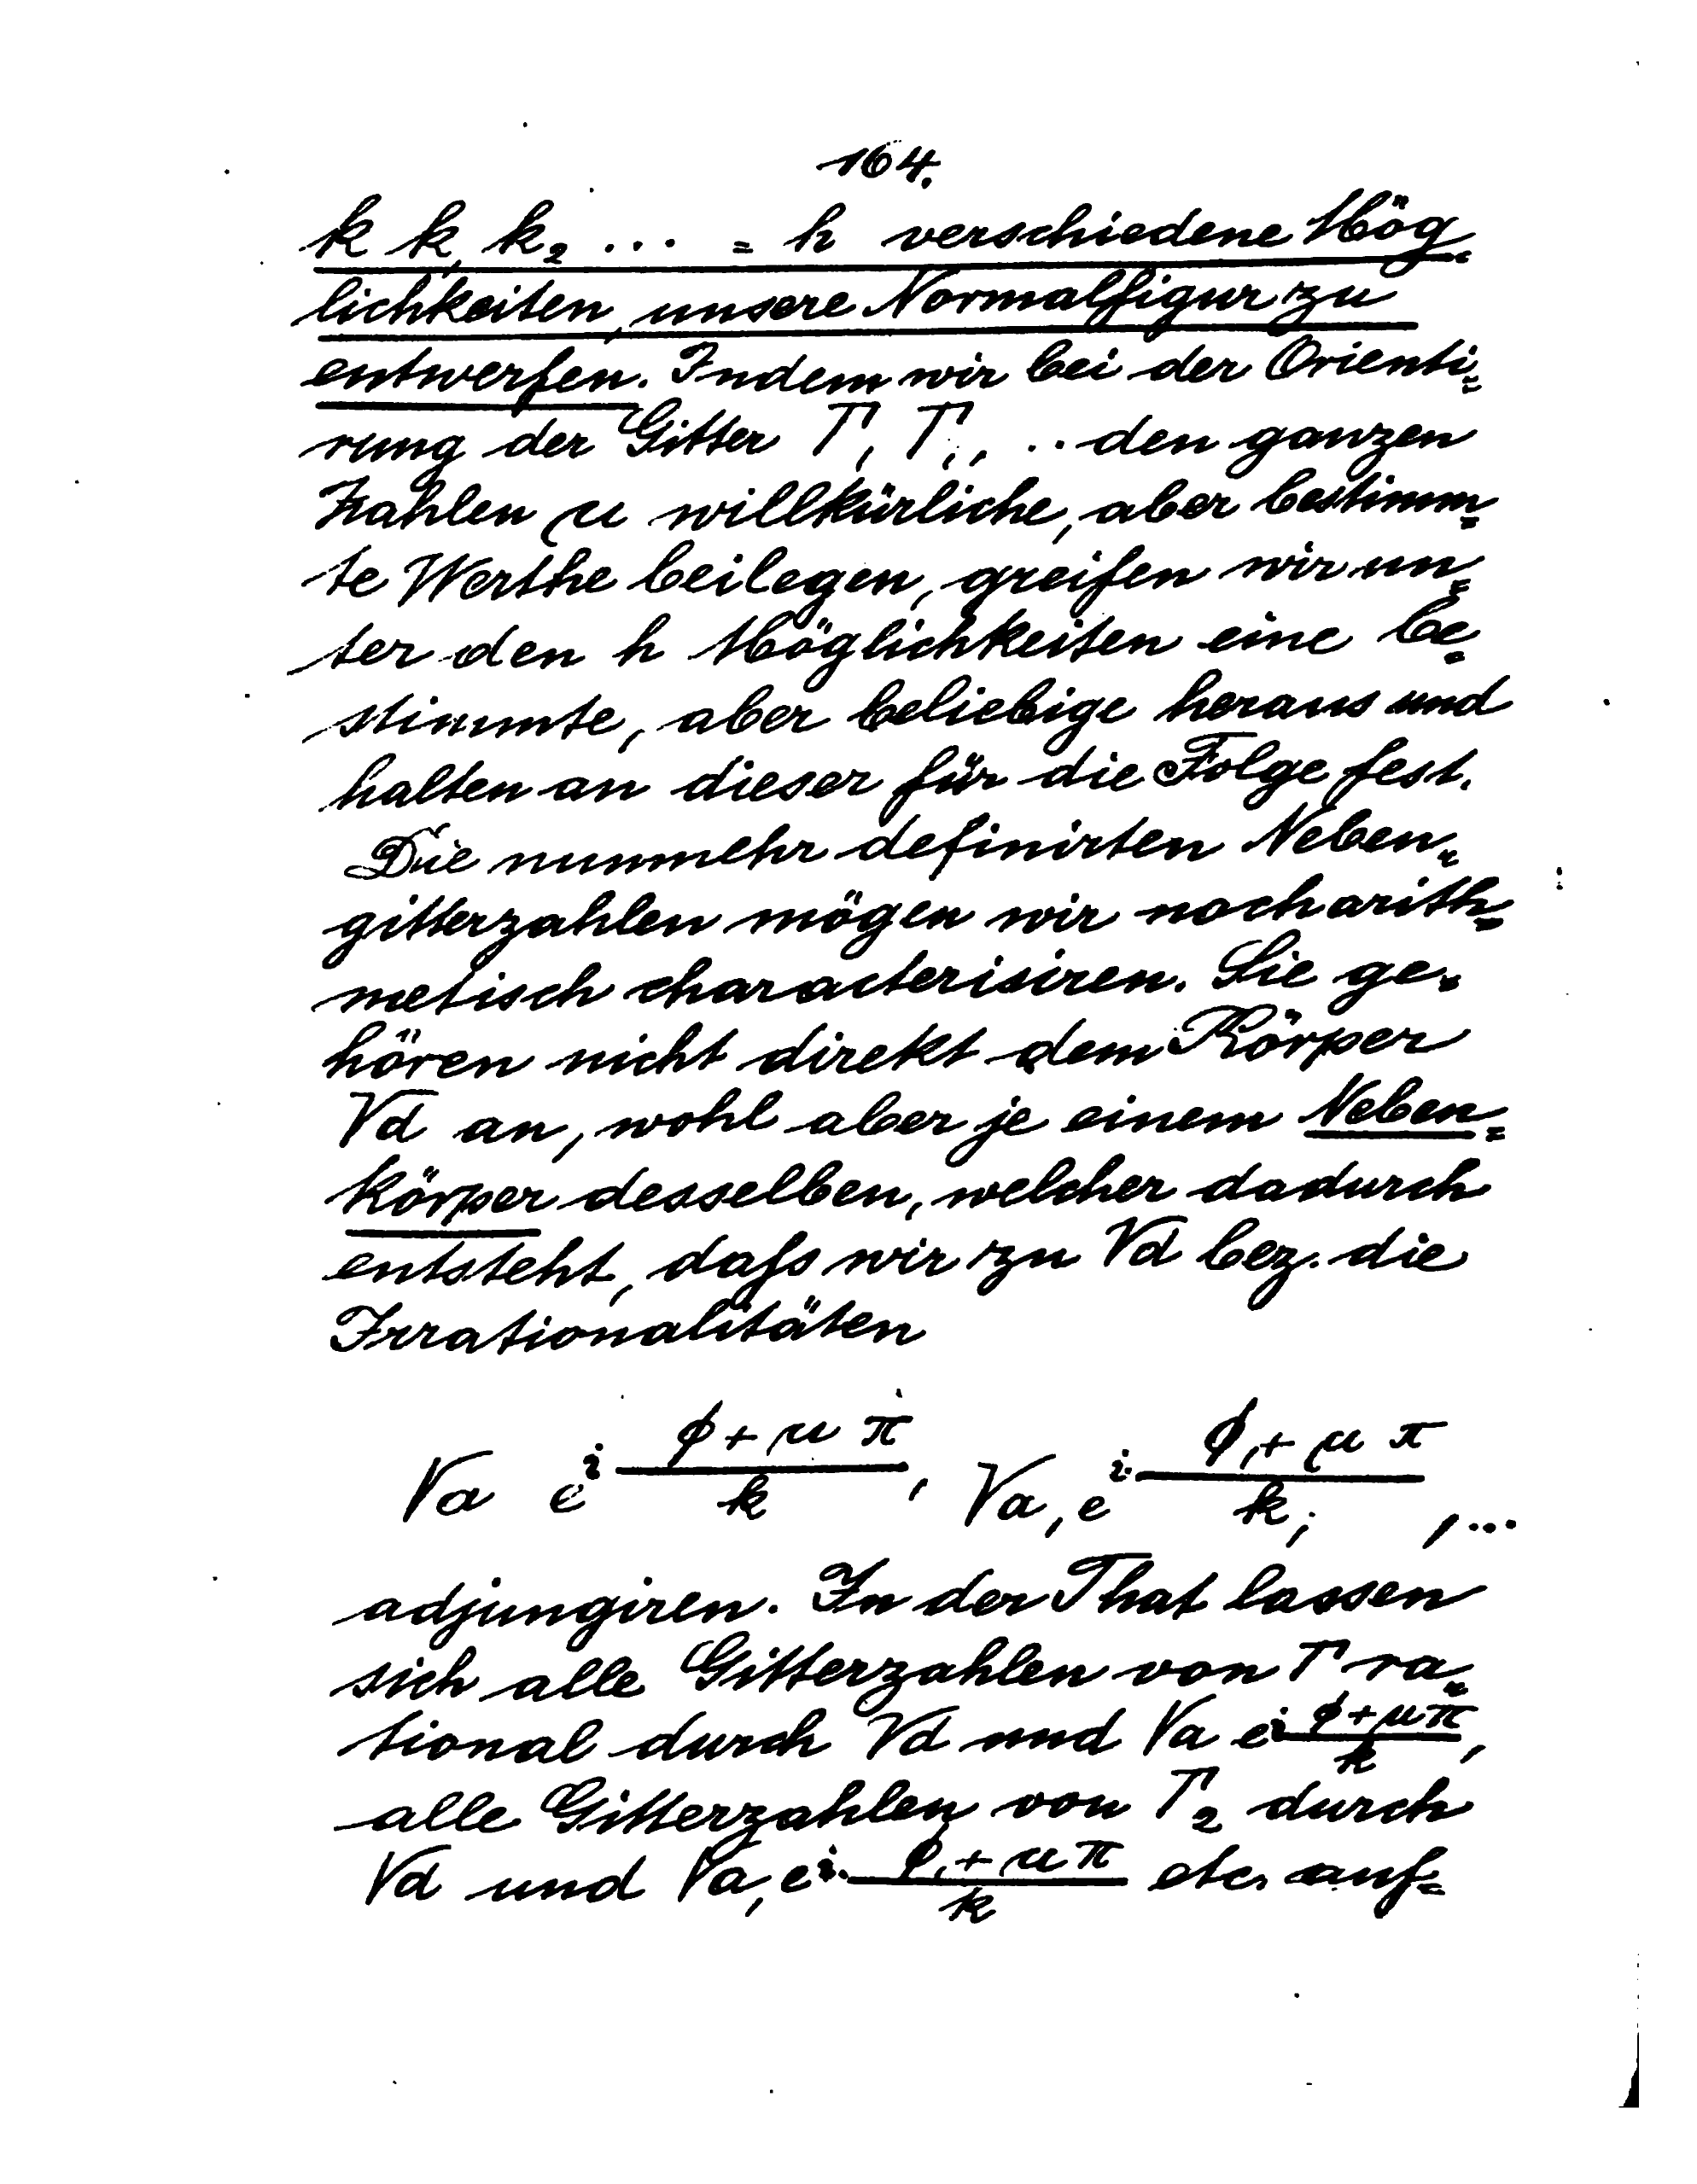 164.
k k, k₂ ... = h verschiedene Mög=
lichkeiten, unsere Normalfigur zu
entwerfen. Indem wir bei der Orienti=
rung der Gitter Γ, Γ,, .. den ganzen
Zahlen μ willkürliche, aber bestimm=
te Werthe beilegen, greifen wir un=
ter den h Möglichkeiten eine be=
stimmte, aber beliebige heraus und
halten an dieser für die Folge fest.
Die nunmehr definirten Neben=
gitterzahlen mögen wir noch arith=
metisch characterisiren. Sie ge=
hören nicht direkt dem Körper
√d an, wohl aber je einem Neben=
körper desselben, welcher dadurch
entsteht, dafs wir zu √d bez. die
Irrationalitäten
√a e^{i (φ + μ π)/k}, √a, e^{i (φ, + μ π)/k,}, ...
adjungiren. In der That lassen
sich alle Gitterzahlen von Γ ra=
tional durch √d und √a e^{i (φ + μ π)/k},
alle Gitterzahlen von Γ₂ durch
√d und √a, e^{i (φ, + μ π)/k} etc. auf=